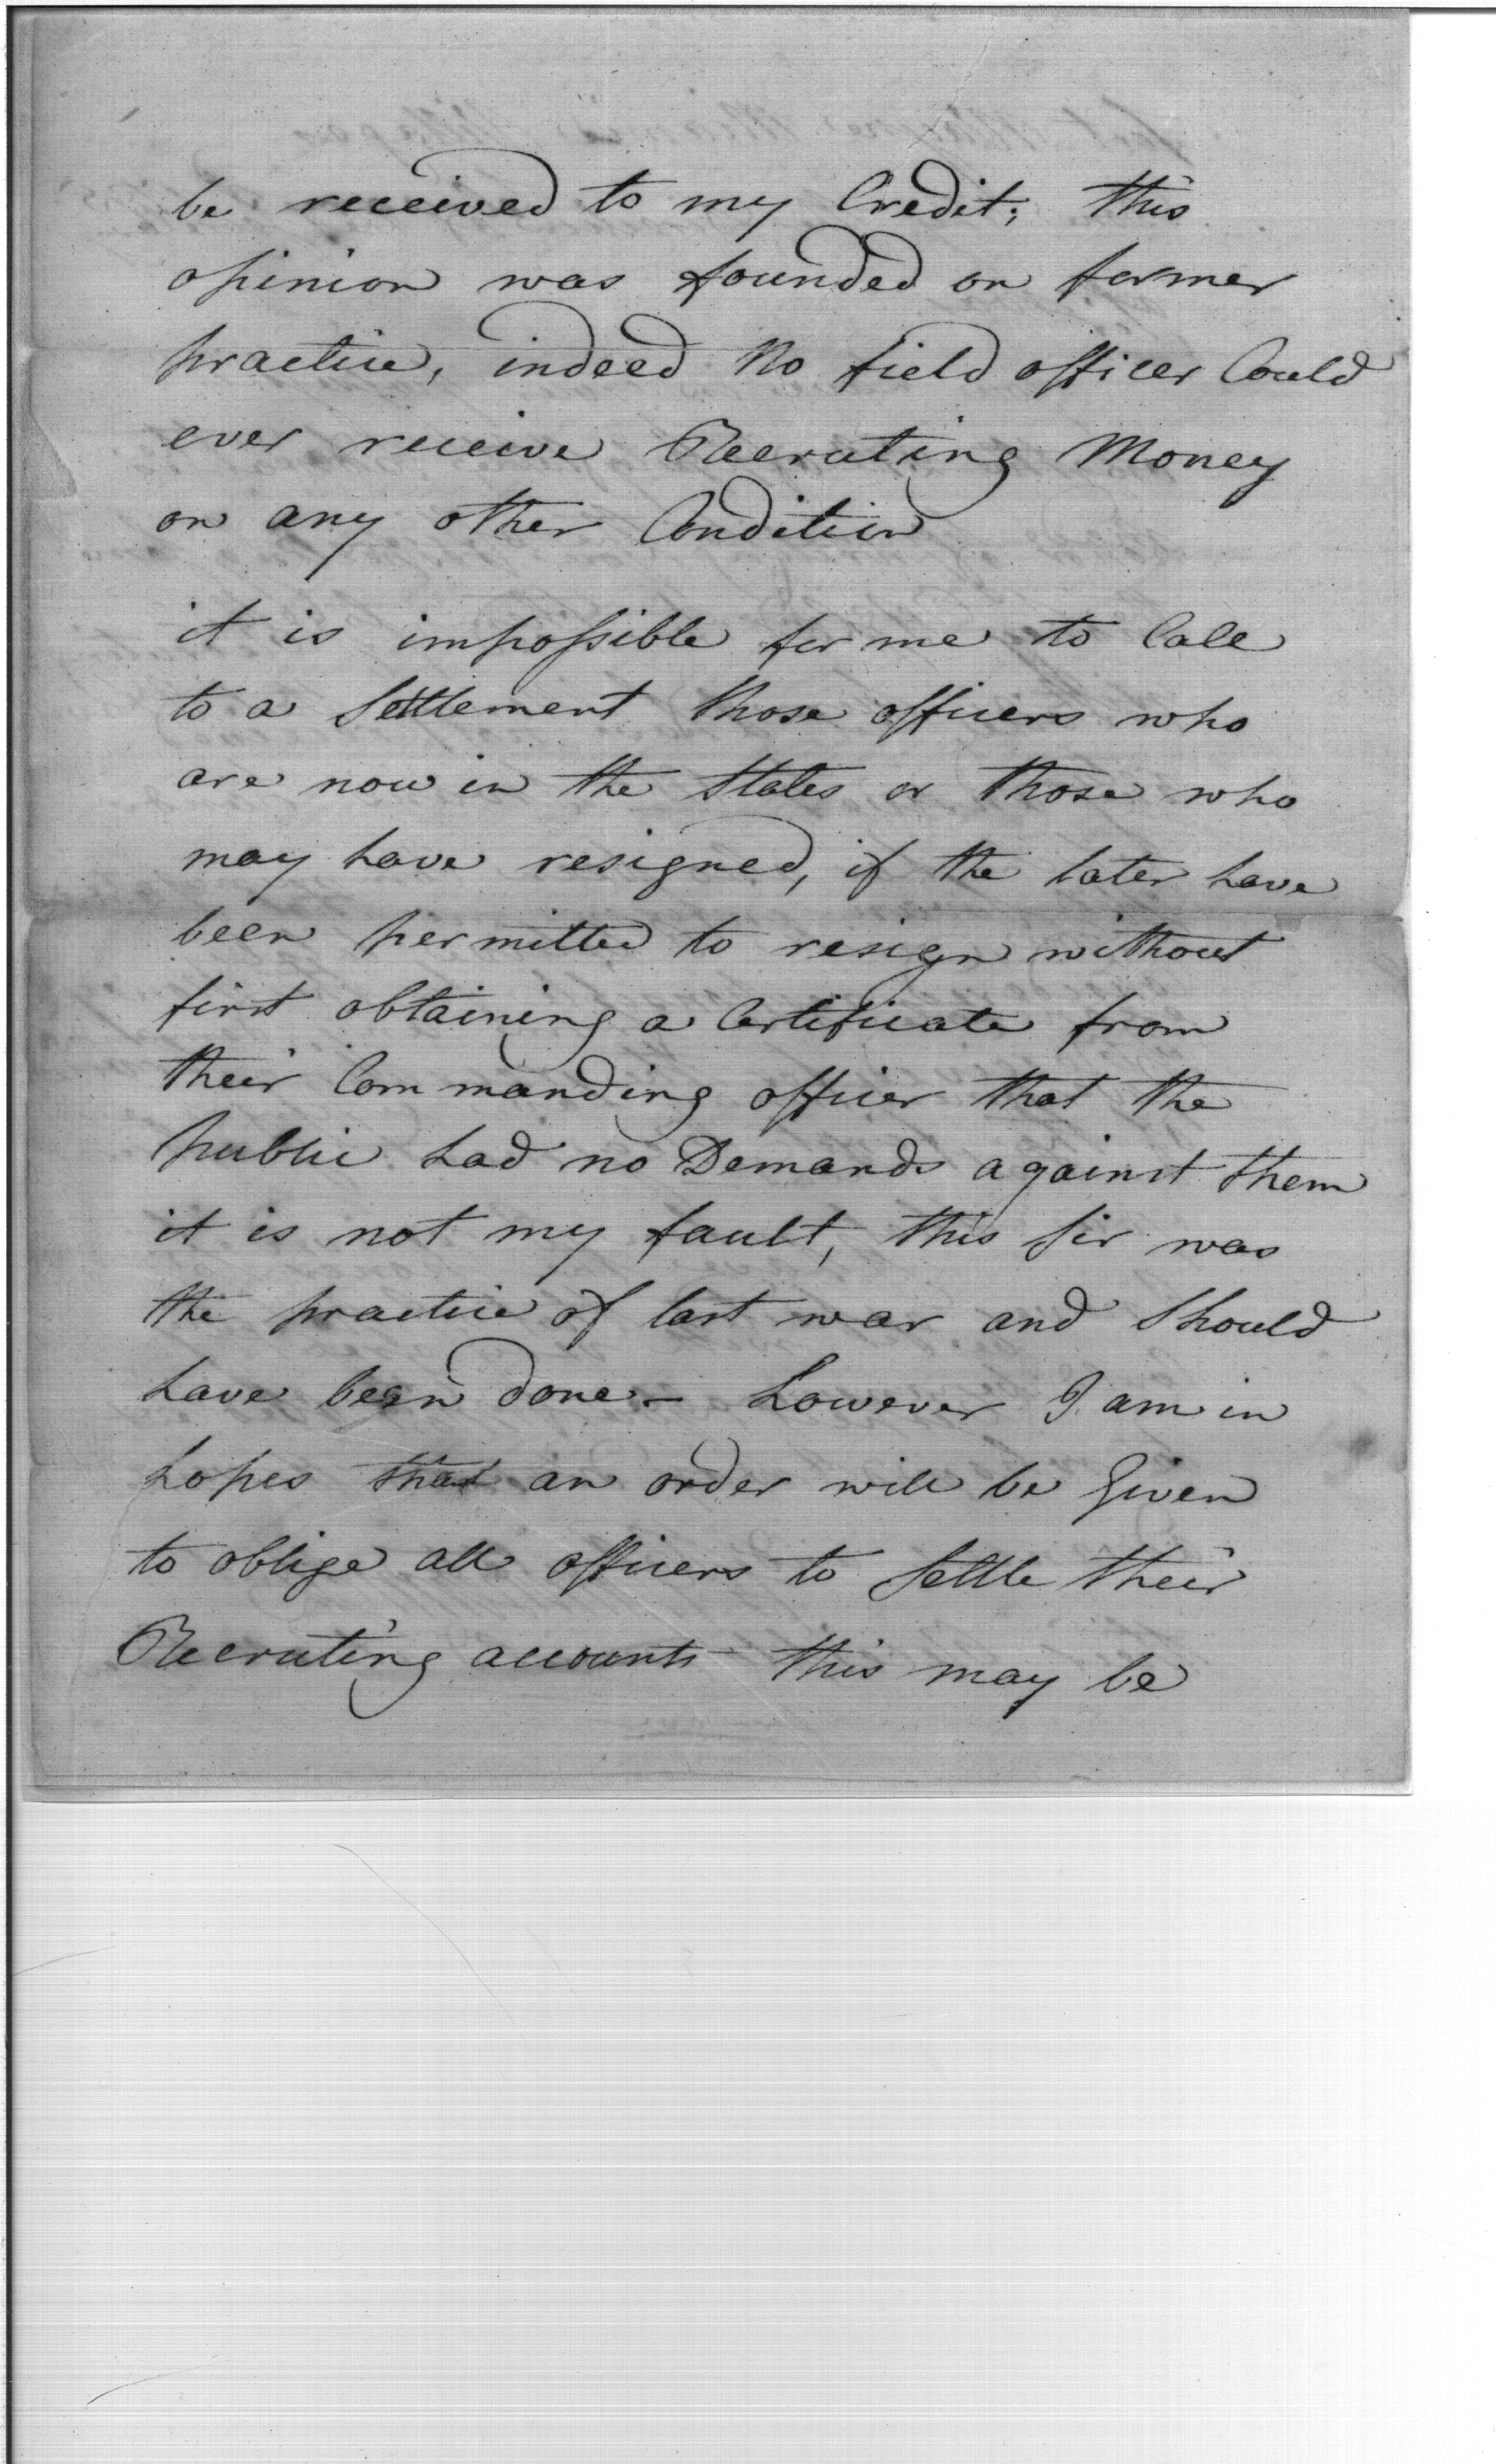 be received to my Credit; this
opinion was founded on former
practice, indeed No field officer Could
ever receive Recruting Money
on any other Condition
it is impossible for me to Call
to a Settlement those officers who
are now in the States or those who
may have resigned, if the later have
been permitted to resign without
first obtaining a Certificate from
their Commanding officer that the
public had no Demands against them
it is not my fault, this Sir was
the practice of last war and Should
have been done – however I am in
hopes that an order will be Given
to oblige all officers to Settle their
Recruting accounts this may be